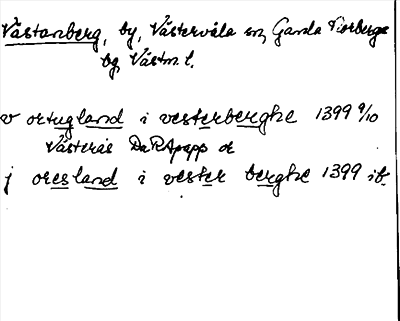 Västanberg, by, Västervåla sn, Gamla Norbergs
bg, Västm. l.
v ortugland i vesterberghe 1399 9/10
Västerås DaRApapp or
j oresland i vester berghe 1399 ib.